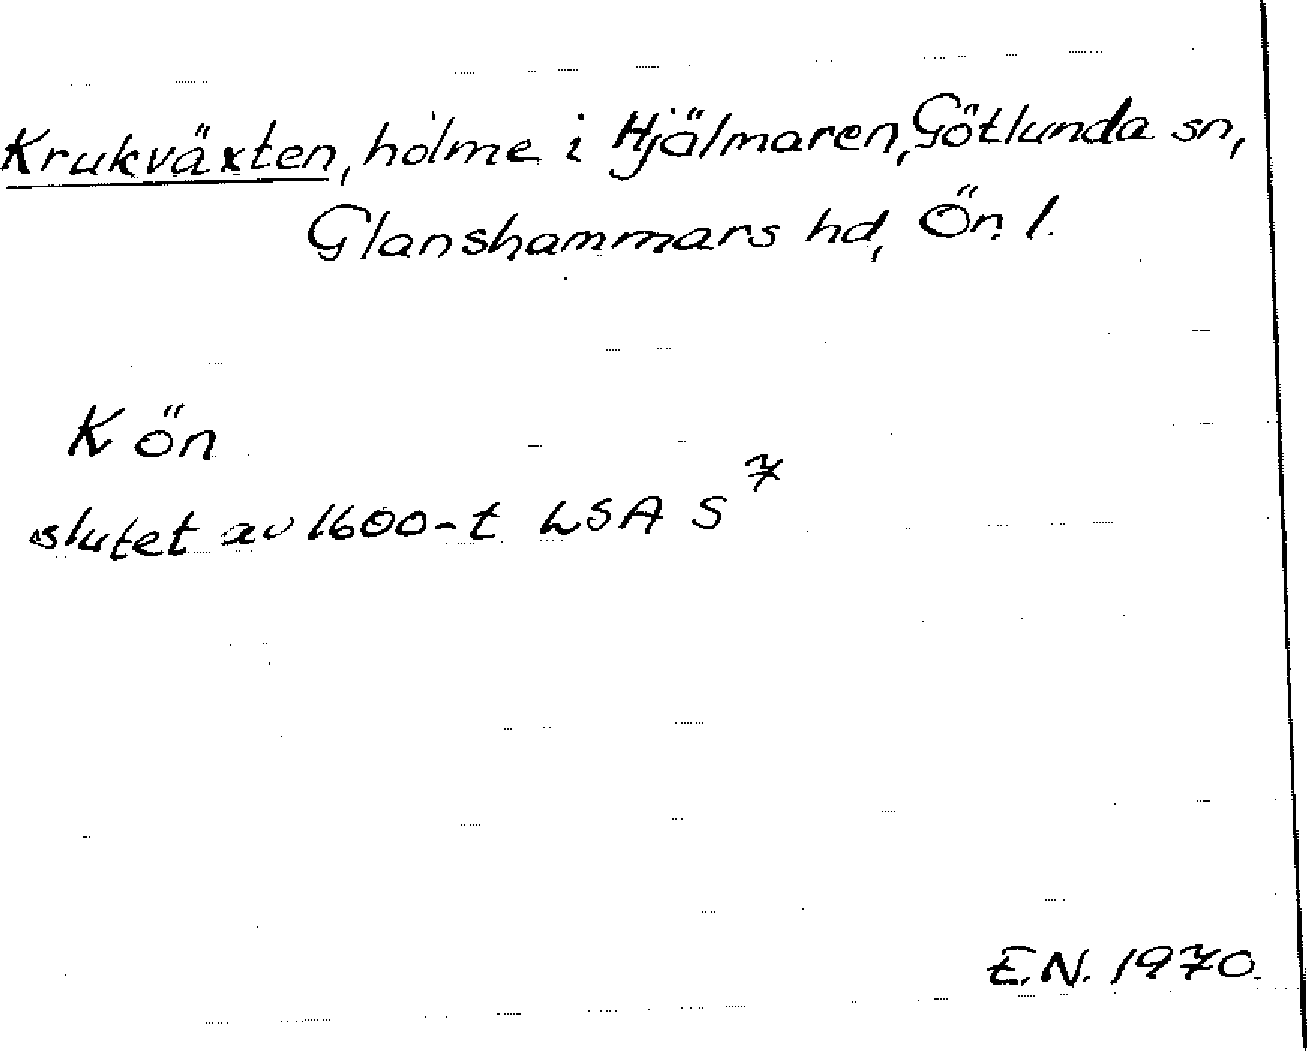 Krukväxten, holme i Hjälmaren, Götlunda sn,
Glanshammars hd, Ön. l.
K ön
slutet av 1600-t LSA S⁷
E.N. 1970.